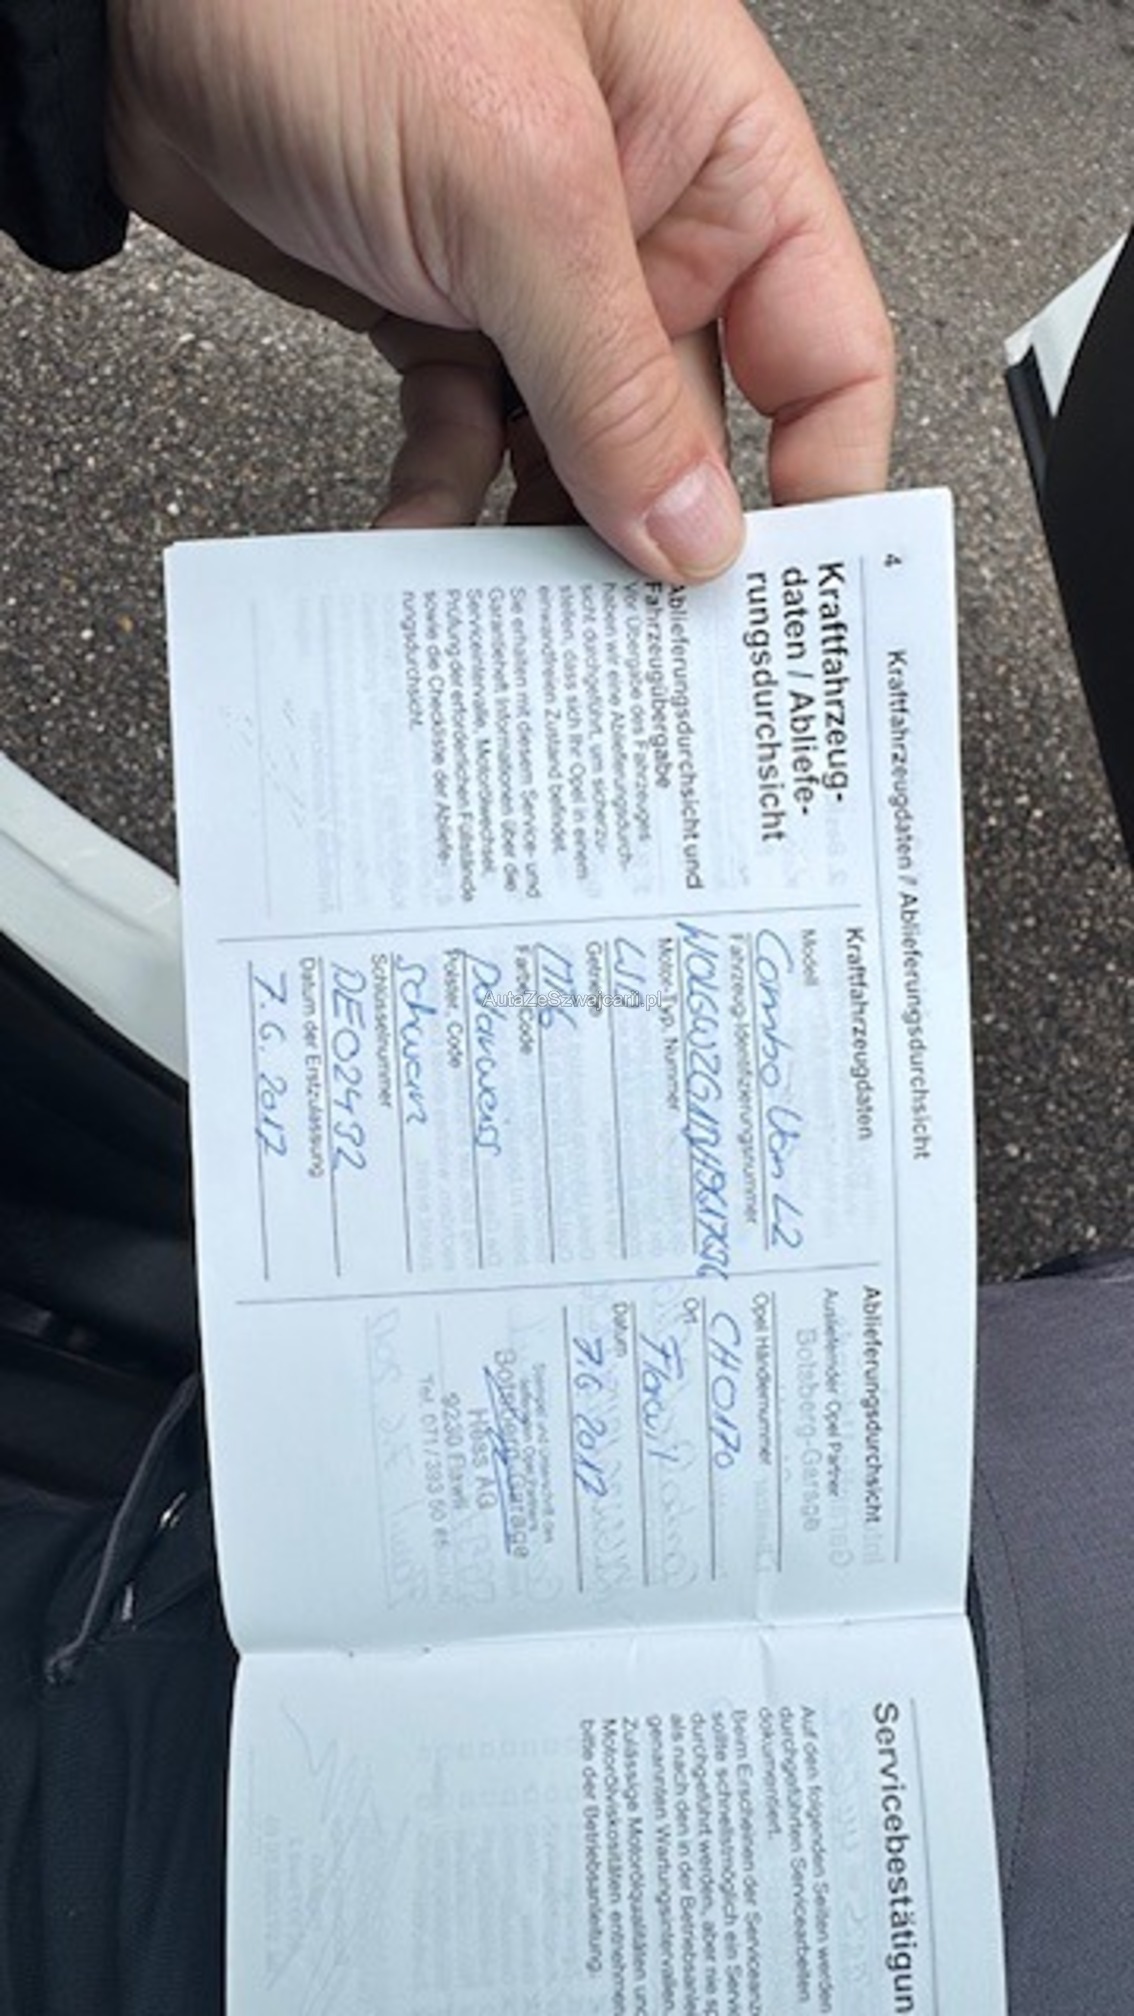 4 Kraftfahrzeugdaten / Ablieferungsdurchsicht
Kraftfahrzeug-
daten / Abliefe-
rungsdurchsicht
Ablieferungsdurchsicht und
Fahrzeugübergabe
Vor Übergabe des Fahrzeuges
haben wir eine Ablieferungsdurch-
sicht durchgeführt, um sicherzu-
stellen, dass sich Ihr Opel in einem
einwandfreien Zustand befindet.
Sie erhalten mit diesem Service- und
Garantieheft Informationen über die
Serviceintervalle, Motorölwechsel,
Prüfung der erforderlichen Füllstände
sowie die Checkliste der Abliefe-
rungsdurchsicht.
Kraftfahrzeugdaten
Modell
Combo Van L2
Fahrzeug-Identifizierungsnummer
Motor, Typ, Nummer
Getriebe
M6
Farbe, Code
Polarweiss
Polster, Code
Schwarz
Schlüsselnummer
DE02492
Datum der Erstzulassung
7.6.2017
Ablieferungsdurchsicht
Ausliefernder Opel Partner
Botsberg-Garage
Opel Händlernummer
CH0170
Ort
Flawil
Datum
7.6.2017
Stempel und Unterschrift des
Botsberg-Garage
Hess AG
9230 Flawil
Tel. 071 / 393 50
Servicebestätigun
Auf den folgenden Seiten werden
durchgeführten Servicearbeiten
dokumentiert.
Beim Erscheinen der Serviceanz
sollte schnellstmöglich ein Servi
durchgeführt werden, aber nie sp
als nach den in der Betriebsanlei
genannten Wartungsintervallen.
Zulässige Motorölqualitäten und
Motorölviskositäten entnehmen
bitte der Betriebsanleitung.
AutaZeSzwajcarii.pl